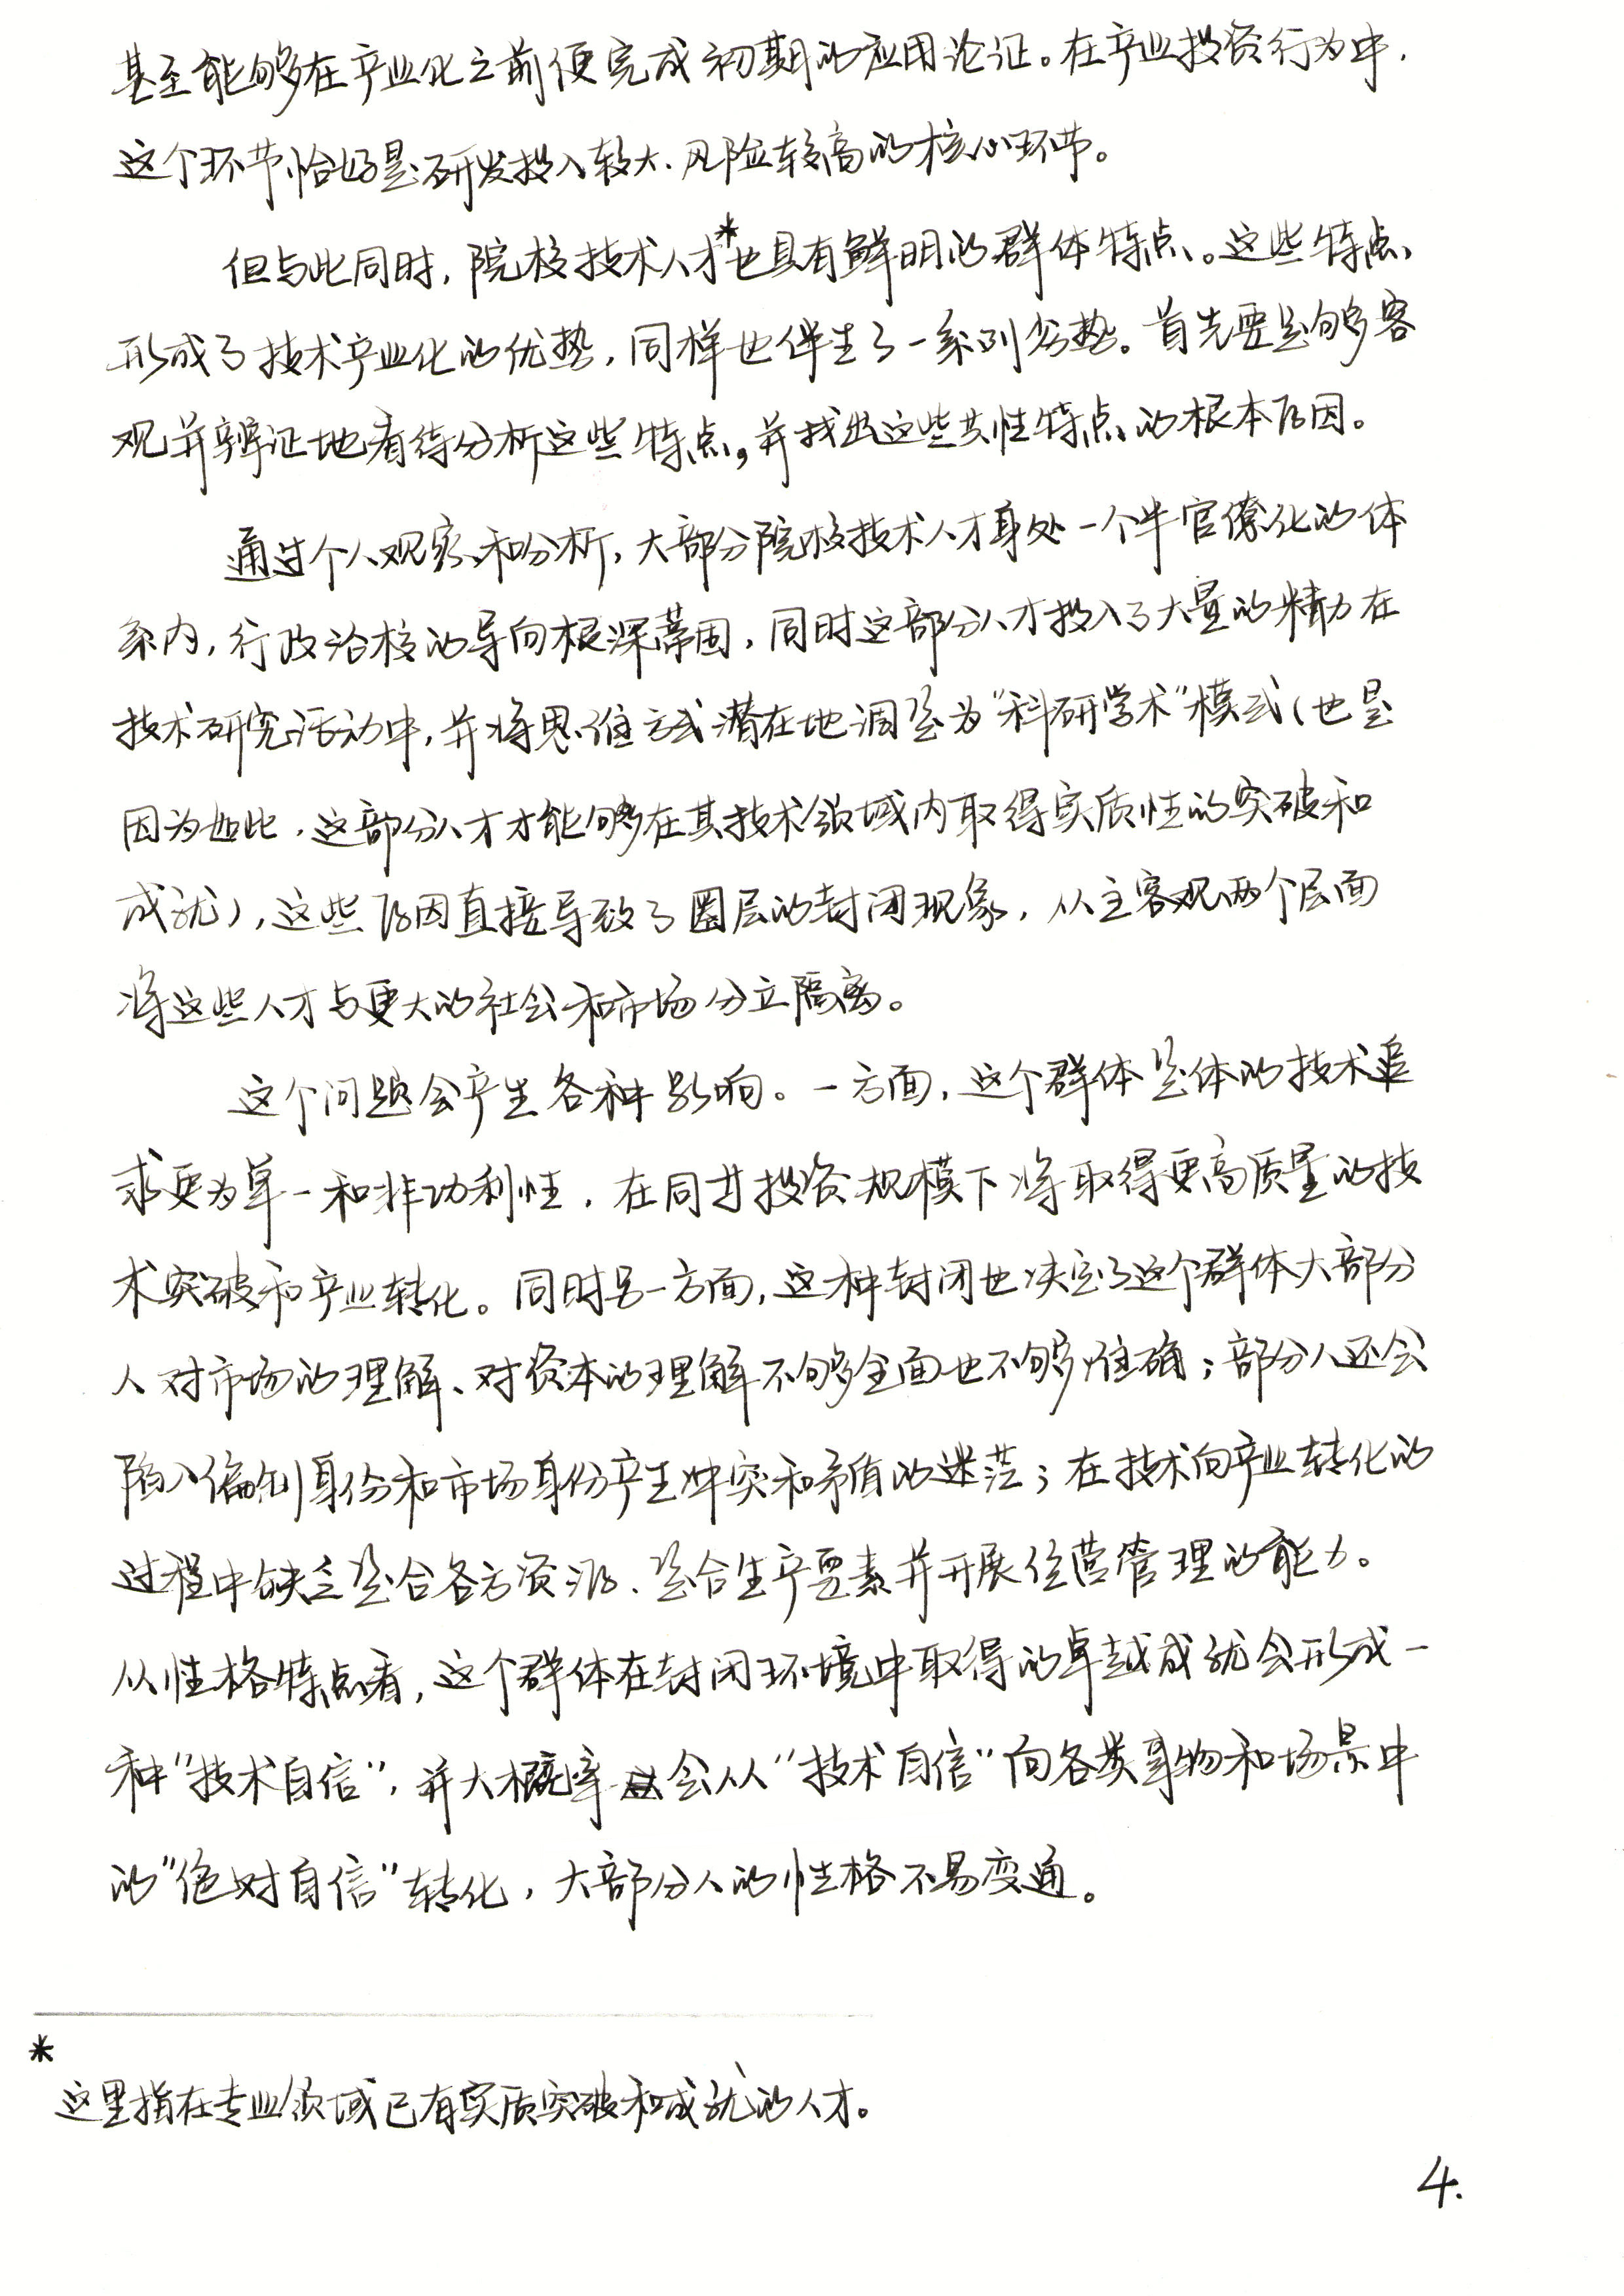 甚至能够在产业化之前便完成初期的应用论证。在产业投资行为中，
这个环节恰好是研发投入较大、风险较高的核心环节。
但与此同时，院校技术人才*也具有鲜明的群体特点。这些特点
形成了技术产业化的优势，同样也伴生了一系列劣势。首先要足够客
观并辨证地看待分析这些特点，并找出这些共性特点的根本原因。
通过个人观察和分析，大部分院校技术人才身处一个半官僚化的体
系内，行政治校的导向根深蒂固，同时这部分人才投入了大量的精力在
技术研究活动中，并将思维方式潜在地调整为“科研学术”模式（也是
因为如此，这部分人才才能够在其技术领域内取得实质性的突破和
成就），这些原因直接导致了圈层的封闭现象，从主客观两个层面
将这些人才与更大的社会和市场分立隔离。
这个问题会产生各种影响。一方面，这个群体整体的技术追
求更为单一和非功利性，在同等投资规模下将取得更高质量的技
术突破和产业转化。同时另一方面，这种封闭也决定了这个群体大部分
人对市场的理解、对资本的理解不够全面也不够准确；部分人还会
陷入编制身份和市场身份产生冲突和矛盾的迷茫；在技术向产业转化的
过程中缺乏整合各方资源、整合生产要素并开展经营管理的能力。
从性格特点看，这个群体在封闭环境中取得的卓越成就会形成一
种“技术自信”，并大概率会从“技术自信”向各类事物和场景中
的“绝对自信”转化，大部分人的性格不易变通。
*
这里指在专业领域已有实质突破和成就的人才。
4.